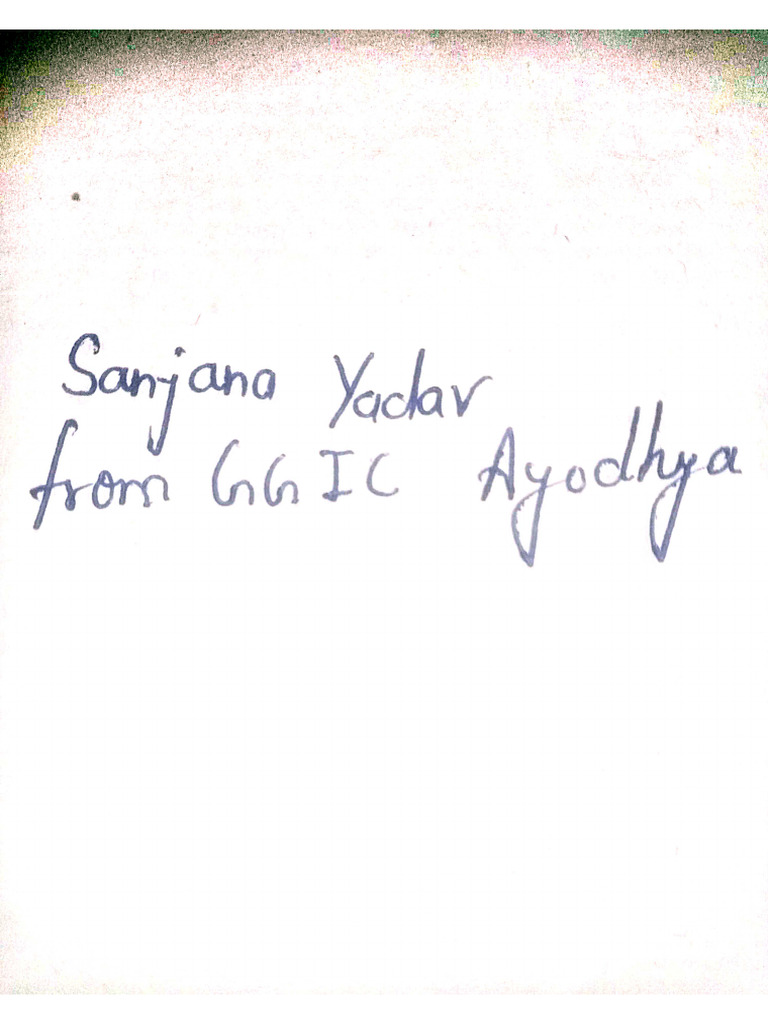 Sanjana Yadav
from GGIC Ayodhya